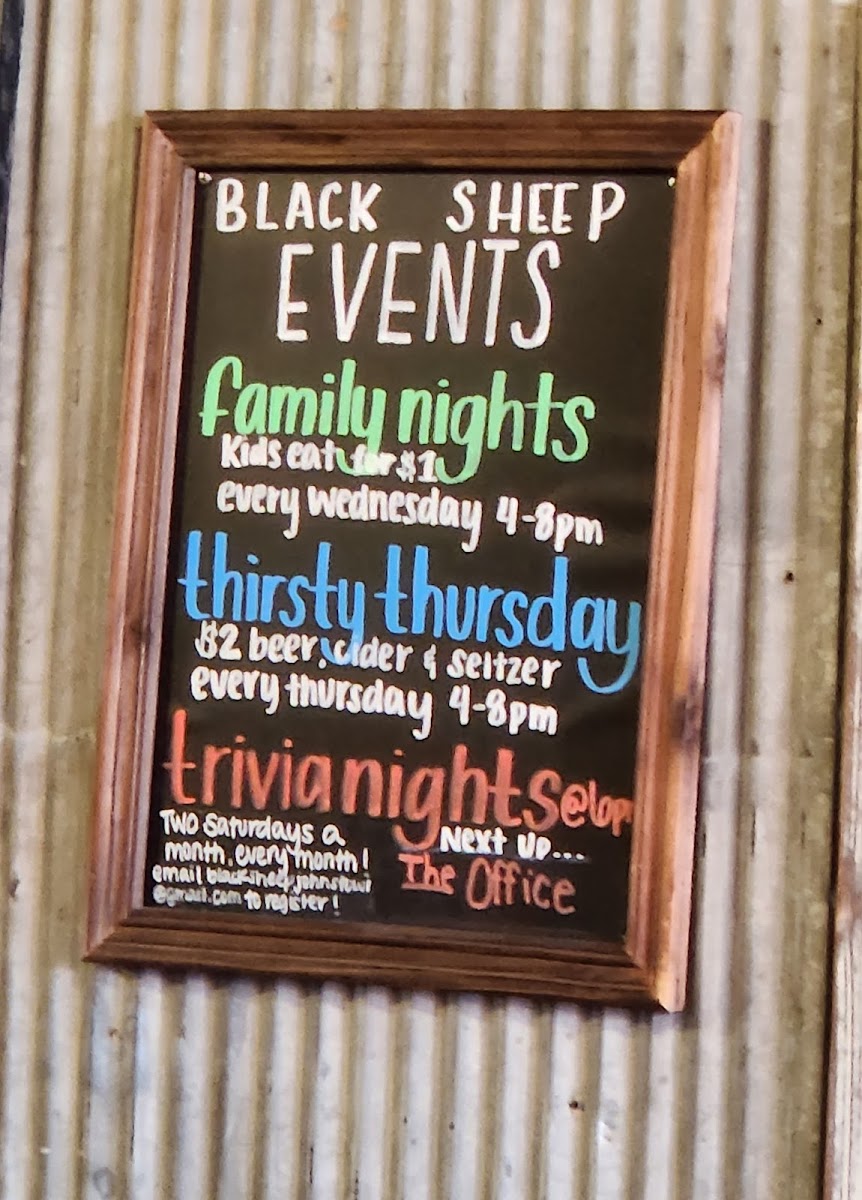 BLACK SHEEP
EVENTS
family nights
Kids eat for $1
every wednesday 4-8pm
thirsty thursday
$2 beer, cider & seltzer
every thursday 4-8pm
trivia nights @6pm
TWO Saturdays a
month, every month!
email blacksheepjohnstown
@gmail.com to register!
Next Up...
The Office